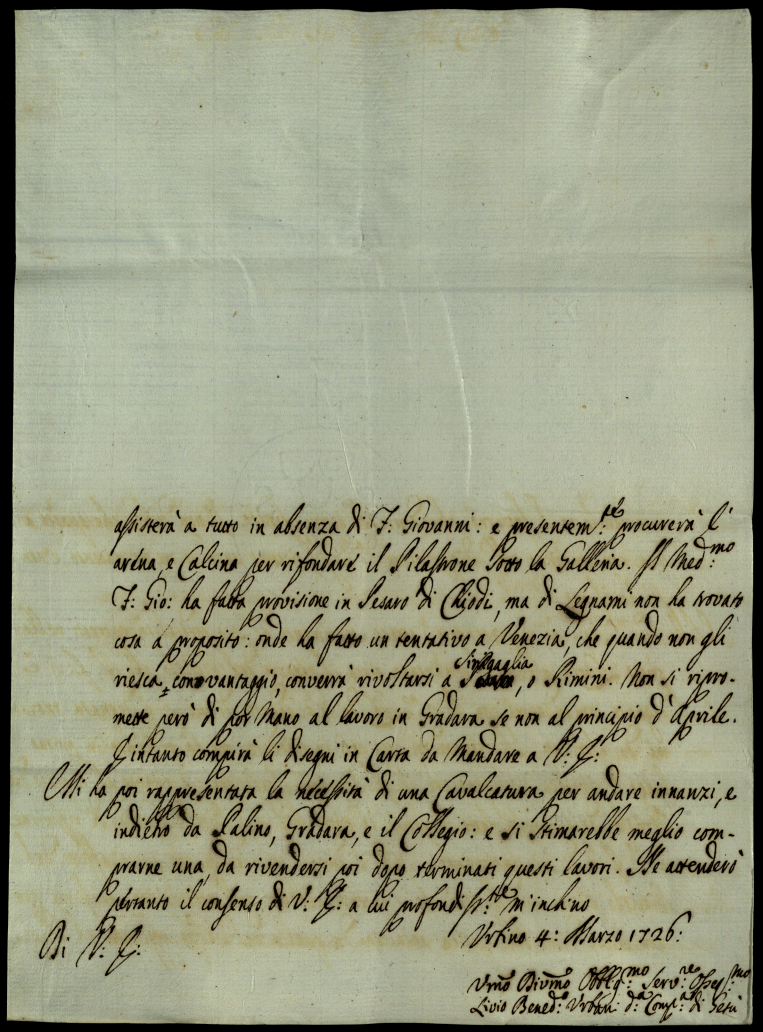 assisterà a tutto in absenza di F: Giovanni: e presentem:te procurerà l'
aréna, e Calcina per rifondare il Pilastrone sotto la Galleria. Il Med:mo
F: Gio: ha fatta provisione in Pesaro di Chiodi, ma di Legnami non ha trovato
cosa a proposito: onde ha fatto un tentativo a Venezia, che quando non gli
riesca con vantaggio, converrà rivoltarsi a Sinigaglia, o Rimini. Non si ripro-
mette però di por Mano al lavoro in Gradara se non al principio d'Aprile.
Frintanto compirà li disegni in Carta da Mandare a V: E:
Mi ha poi rappresentata la necessità di una Cavalcatura per andare innanzi, e
indietro da Palino, Gradara, e il Collegio: e si stimarebbe meglio com-
prarne una, da rivendersi poi dopo terminati questi lavori. Ne attenderò
pertanto il consenso di V: E: a cui profondiss:te m'inchino
Di V: E:
Urbino 4: Marzo 1726:
Umo Divmo Obblig:mo Serv:re Osseq:mo
Livio Bened: